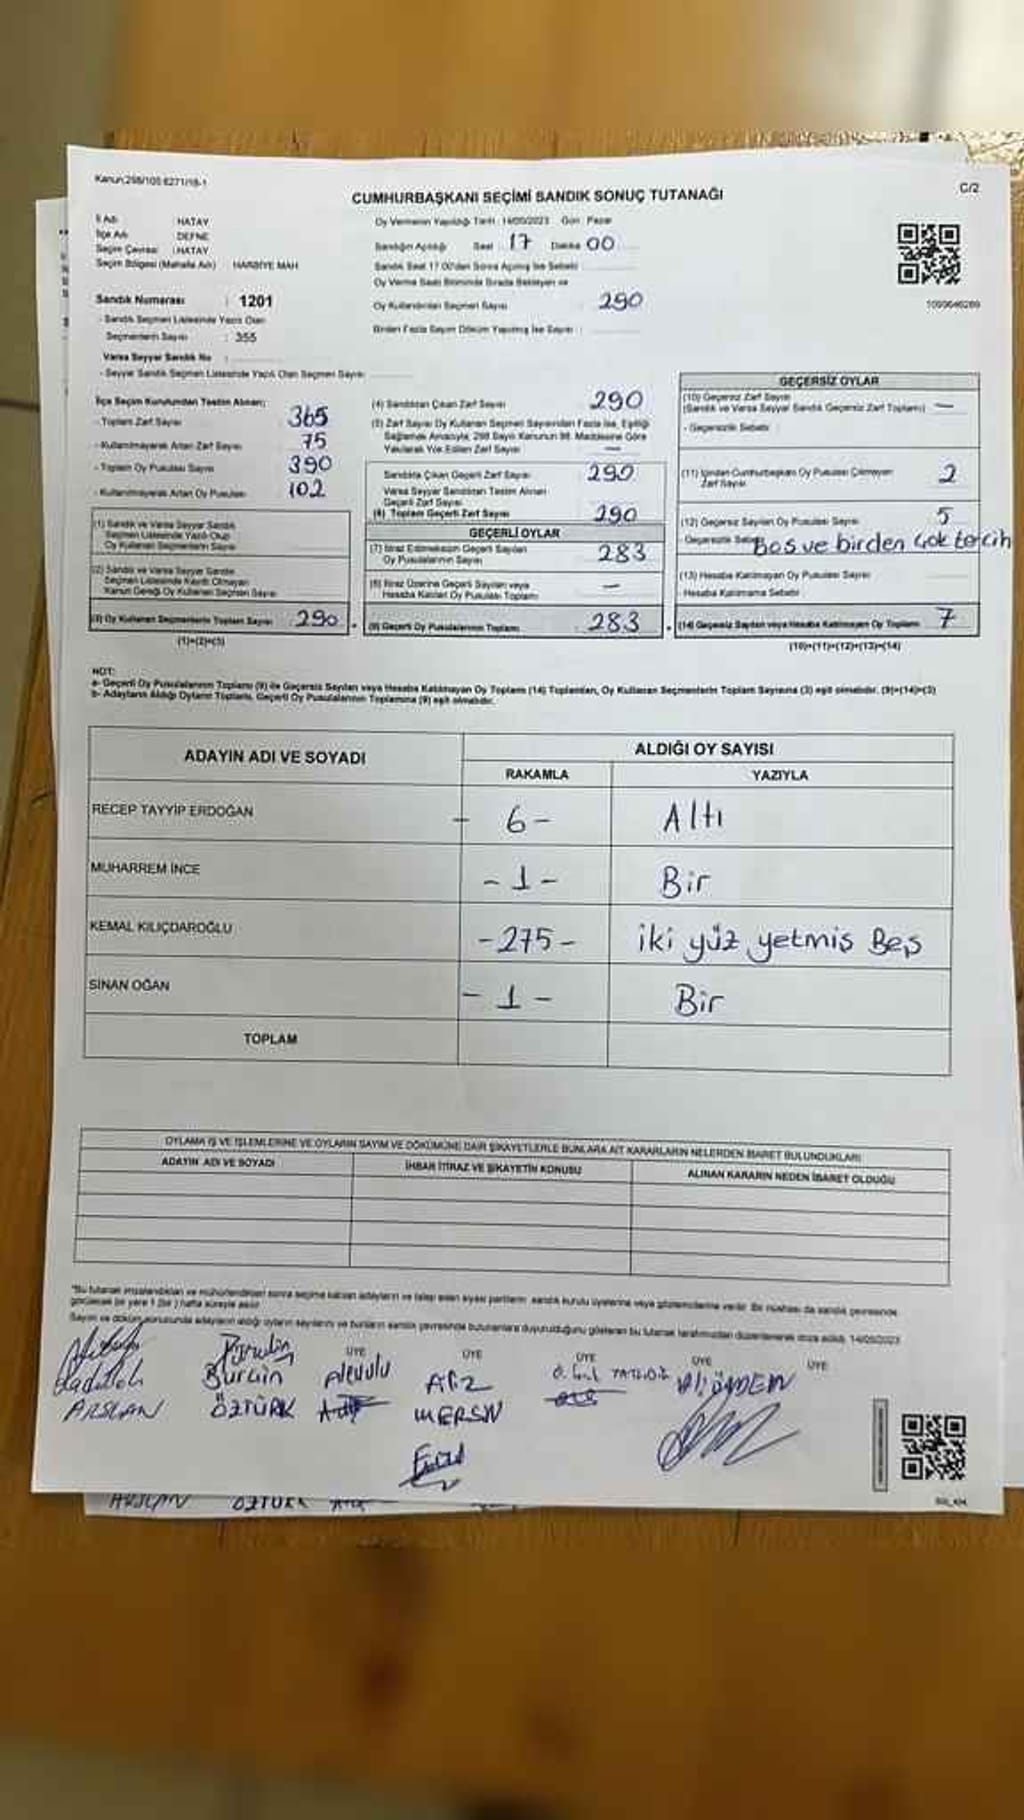 Kanun:298/105 6271/18-1
C/2
CUMHURBAŞKANI SEÇİMİ SANDIK SONUÇ TUTANAĞI
İl Adı : HATAY
İlçe Adı : DEFNE
Seçim Çevresi : HATAY
Seçim Bölgesi (Mahalle Adı) HARBİYE MAH
Sandık Numarası : 1201
- Sandık Seçmen Listesinde Yazılı Olan
Seçmenlerin Sayısı : 355
Varsa Seyyar Sandık No :
- Seyyar Sandık Seçmen Listesinde Yazılı Olan Seçmen Sayısı
Oy Vermenin Yapıldığı Tarih : 14/05/2023 Gün : Pazar
Sandığın Açıldığı Saat : 17 Dakika 00
Sandık Saat 17.00'den Sonra Açılmış İse Sebebi
Oy Verme Saati Bitiminde Sırada Bekleyen ve
Oy Kullandırılan Seçmen Sayısı 290
Birden Fazla Sayım Döküm Yapılmış İse Sayısı :
İlçe Seçim Kurulundan Teslim Alınan:
- Toplam Zarf Sayısı 365
- Kullanılmayarak Artan Zarf Sayısı 75
- Toplam Oy Pusulası Sayısı 390
- Kullanılmayarak Artan Oy Pusulası 102
(1) Sandık ve Varsa Seyyar Sandık
Seçmen Listesinde Yazılı Olup
Oy Kullanan Seçmenlerin Sayısı
(2) Sandık ve Varsa Seyyar Sandık
Seçmen Listesinde Kayıtlı Olmayan
Kanun Gereği Oy Kullanan Seçmen Sayısı
(3) Oy Kullanan Seçmenlerin Toplam Sayısı 290
(1)+(2)=(3)
(4) Sandıktan Çıkan Zarf Sayısı 290
(5) Zarf Sayısı Oy Kullanan Seçmen Sayısından Fazla İse, Eşitliği
Sağlamak Amacıyla, 298 Sayılı Kanunun 98. Maddesine Göre
Yakılarak Yok Edilen Zarf Sayısı —
Sandıkta Çıkan Geçerli Zarf Sayısı 290
Varsa Seyyar Sandıktan Teslim Alınan
Geçerli Zarf Sayısı
(6) Toplam Geçerli Zarf Sayısı 290
GEÇERLİ OYLAR
(7) İtiraz Edilmeksizin Geçerli Sayılan
Oy Pusulalarının Sayısı 283
(8) İtiraz Üzerine Geçerli Sayılan veya
Hesaba Katılan Oy Pusulası Toplamı —
(9) Geçerli Oy Pusulalarının Toplamı 283
GEÇERSİZ OYLAR
(10) Geçersiz Zarf Sayısı
(Sandık ve Varsa Seyyar Sandık Geçersiz Zarf Toplamı) —
- Geçersizlik Sebebi
(11) İçinden Cumhurbaşkanı Oy Pusulası Çıkmayan
Zarf Sayısı 2
(12) Geçersiz Sayılan Oy Pusulası Sayısı 5
Geçersizlik Sebebi Bos ve birden Çok tercih
(13) Hesaba Katılmayan Oy Pusulası Sayısı
- Hesaba Katılmama Sebebi
(14) Geçersiz Sayılan veya Hesaba Katılmayan Oy Toplamı 7
(10)+(11)+(12)+(13)=(14)
NOT:
a- Geçerli Oy Pusulalarının Toplamı (9) ile Geçersiz Sayılan veya Hesaba Katılmayan Oy Toplamı (14) Toplamları, Oy Kullanan Seçmenlerin Toplam Sayısına (3) eşit olmalıdır. (9)+(14)=(3)
b- Adayların Aldığı Oyların Toplamı, Geçerli Oy Pusulalarının Toplamına (9) eşit olmalıdır.
ADAYIN ADI VE SOYADI
ALDIĞI OY SAYISI
RAKAMLA YAZIYLA
RECEP TAYYİP ERDOĞAN - 6 - Altı
MUHARREM İNCE - 1 - Bir
KEMAL KILIÇDAROĞLU - 275 - iki yüz yetmis Beş
SİNAN OĞAN - 1 - Bir
TOPLAM
OYLAMA İŞ VE İŞLEMLERİNE VE OYLARIN SAYIM VE DÖKÜMÜNE DAİR ŞİKAYETLERLE BUNLARA AİT KARARLARIN NELERDEN İBARET BULUNDUKLARI
ADAYIN ADI VE SOYADI İHBAR İTİRAZ VE ŞİKAYETİN KONUSU ALINAN KARARIN NEDEN İBARET OLDUĞU
*Bu tutanak imzalandıktan ve mühürlendikten sonra seçime katılan adayların ve talep eden siyasi partilerin sandık kurulu üyelerine veya gözlemcilerine verilir. Bir nüshası da sandık çevresinde
görülecek bir yere 1 (bir) hafta süreyle asılır.
Sayım ve döküm sonucunda adayların aldığı oyların sayılarını ve bunların sandık çevresinde bulunanlara duyurulduğunu gösteren bu tutanak tarafımızdan düzenlenerek imza edildi. 14/05/2023
ÜYE ÜYE ÜYE ÜYE ÜYE
Burcin
ARSLAN ÖZTÜRK MERSİN
ARSLAN ÖZTÜRK